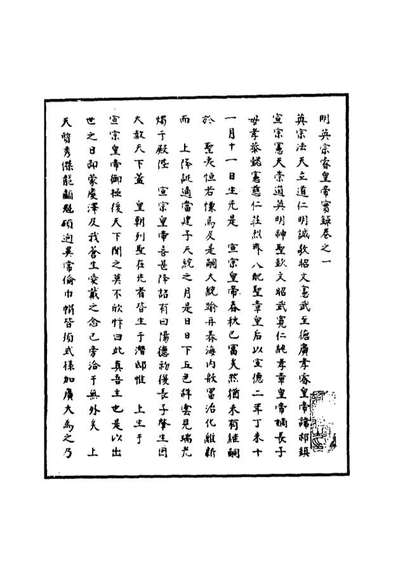 明英宗睿皇帝實錄卷之一
英宗法天立道仁明誠敬昭文憲武至德廣孝睿皇帝諱祁鎮
宣宗憲天崇道英明神聖欽文昭武寬仁純孝章皇帝嫡長子
母孝恭懿憲慈仁莊烈齊天配聖章皇后以宣德二年丁未十
一月十一日生先是　宣宗皇帝春秋已富矣然猶未有繼嗣
於　聖衷恒若慊焉及是嗣大統踰再春海內敉寧治化維新
而　上降誕適當建子天統之月是日日下五色祥雲見瑞光
燭于殿陛　宣宗皇帝喜甚降詔有曰陽德初復長子肇生因
大赦天下蓋　皇朝列聖在先者皆生于潛邸惟　上生于
宣宗皇帝御極後天下聞之莫不欣忭曰此真吾主也是以出
世之日即蒙慶澤及我蒼生愛戴之念已旁洽于無外矣　上
天質秀傑龍顱魁碩迥異常倫巾幘皆須式樣加廣大為之乃